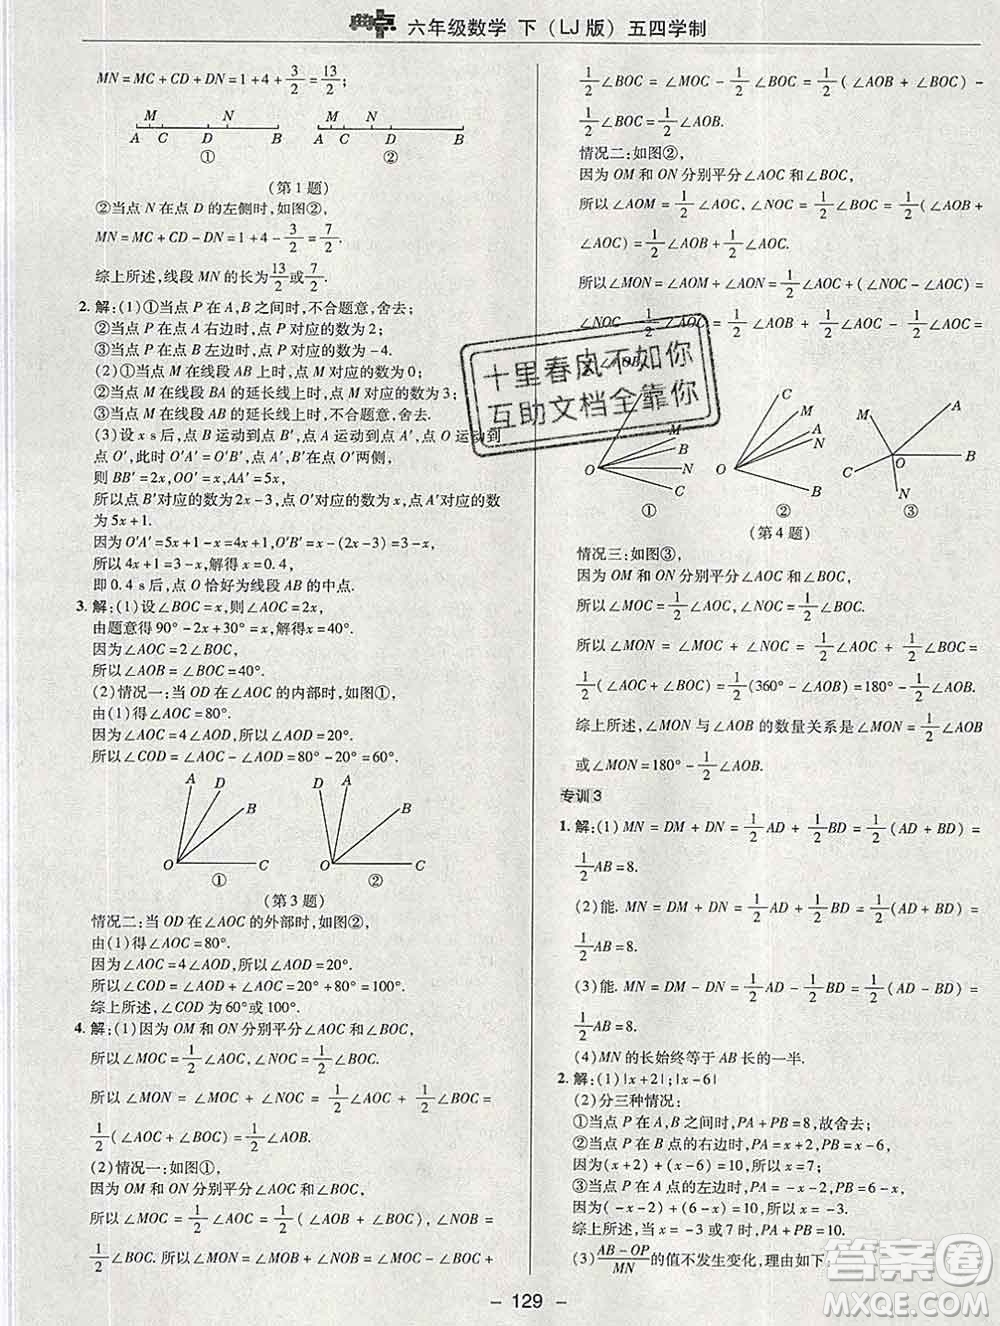 典点 六年级数学 下（LJ版）五四学制
MN=MC+CD+DN=1+4+3/2=13/2；
M N
A C D B
①
M N
A C D B
②
(第1题)
②当点 N 在点 D 的左侧时,如图②,
MN=MC+CD-DN=1+4-3/2=7/2.
综上所述,线段 MN 的长为13/2或7/2.
2. 解:(1)①当点 P 在 A,B 之间时,不合题意,舍去;
②当点 P 在点 A 右边时,点 P 对应的数为 2;
③当点 P 在点 B 左边时,点 P 对应的数为-4.
(2)①当点 M 在线段 AB 上时,点 M 对应的数为 0;
②当点 M 在线段 BA 的延长线上时,点 M 对应的数为 3;
③当点 M 在线段 AB 的延长线上时,不合题意,舍去.
(3)设 x s后,点 B 运动到点 B′,点 A 运动到点 A′,点 O 运动到
点 O′,此时 O′A′=O′B′,点 A′、点 B′在点 O′两侧,
则 BB′=2x,OO′=x,AA′=5x,
所以点 B′对应的数为 2x-3,点 O′对应的数为 x,点 A′对应的数
为 5x+1.
因为 O′A′=5x+1-x=4x+1,O′B′=x-(2x-3)=3-x,
所以 4x+1=3-x,解得 x=0.4,
即 0.4 s后,点 O 恰好为线段 AB 的中点.
3. 解:(1)设∠BOC=x,则∠AOC=2x,
由题意得 90°-2x+30°=x,解得 x=40°.
因为∠AOC=2∠BOC,
所以∠AOB=∠BOC=40°.
(2)情况一:当 OD 在∠AOC的内部时,如图①,
由(1)得∠AOC=80°.
因为∠AOC=4∠AOD,所以∠AOD=20°.
所以∠COD=∠AOC-∠AOD=80°-20°=60°.
A D B O C
①
D A B O C
②
(第3题)
情况二:当 OD 在∠AOC 的外部时,如图②,
由(1)得∠AOC=80°.
因为∠AOC=4∠AOD,所以∠AOD=20°.
所以∠COD=∠AOC+∠AOD=20°+80°=100°.
综上所述,∠COD 为 60°或100°.
4. 解:(1)因为 OM 和 ON 分别平分∠AOC和∠BOC,
所以∠MOC=1/2∠AOC,∠NOC=1/2∠BOC.
所以∠MON=∠MOC+∠NOC=1/2∠AOC+1/2∠BOC=
1/2(∠AOC+∠BOC)=1/2∠AOB.
(2)情况一:如图①,
因为 OM 和 ON 分别平分∠AOC 和∠BOC,
所以∠MOC=1/2∠AOC=1/2(∠AOB+∠BOC),∠NOC=
1/2∠BOC. 所以∠MON=∠MOC-∠NOC=∠MOC-
1/2∠BOC=∠MOC-1/2∠BOC=1/2(∠AOB+∠BOC)-
1/2∠BOC=1/2∠AOB.
情况二:如图②,
因为 OM 和 ON 分别平分∠AOC 和∠BOC,
所以∠AOM=1/2∠AOC,∠NOC=1/2∠BOC=1/2(∠AOB+
∠AOC)=
所以∠MON=∠AOM+∠AON=1/2∠AOC+(∠NOC-∠AOC)=
∠NOC-1/2∠AOC=1/2∠AOB+1/2∠AOC-1/2∠AOC=
十里春风不如你
互助文档全靠你
A M B N C O
①
C M A N B O
②
M A B O C N
③
(第4题)
情况三:如图③,
因为 OM 和 ON 分别平分∠AOC 和∠BOC,
所以∠MOC=1/2∠AOC,∠NOC=1/2∠BOC.
所以∠MON=∠MOC+∠NOC=1/2∠AOC+1/2∠BOC=
1/2(∠AOC+∠BOC)=1/2(360°-∠AOB)=180°-1/2∠AOB.
综上所述,∠MON 与∠AOB 的数量关系是∠MON=1/2∠AOB
或∠MON=180°-1/2∠AOB.
专训3
1. 解:(1)MN=DM+DN=1/2AD+1/2BD=1/2(AD+BD)=
1/2AB=8.
(2)能. MN=DM+DN=1/2AD+1/2BD=1/2(AD+BD)=
1/2AB=8.
(3)能. MN=DM-DN=1/2AD-1/2BD=1/2(AD-BD)=
1/2AB=8.
(4)MN 的长始终等于 AB 长的一半.
2. 解:(1)|x+2|;|x-6|
(2)分三种情况:
①当点 P 在 A,B 之间时,PA+PB=8,故舍去;
②当点 P 在 B 点的右边时,PA=x+2,PB=x-6,
因为(x+2)+(x-6)=10,所以 x=7;
③当点 P 在 A 点的左边时,PA=-x-2,PB=6-x,
因为(-x-2)+(6-x)=10,所以 x=-3.
综上所述,当 x=-3或7时,PA+PB=10.
(3)(AB-OP)/MN的值不发生变化,理由如下:
答案圈
MXQE.COM
- 129 -